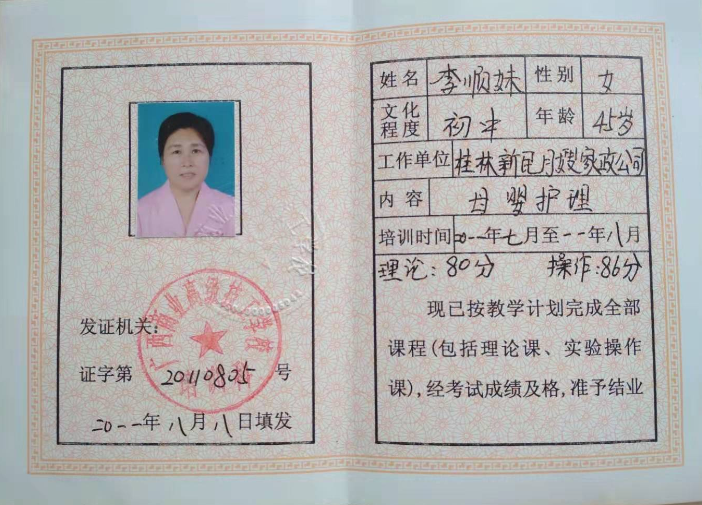 广西商业高级技工学校
发证机关:
证字第 20110805 号
二0一一年八月八日填发
姓名 李顺妹 性别 女
文化程度 初中 年龄 45岁
工作单位 桂林新民月嫂家政公司
内容 母婴护理
培训时间 二0一一年七月至一一年八月
理论:80分 操作:86分
现已按教学计划完成全部
课程(包括理论课、实验操作
课),经考试成绩及格,准予结业